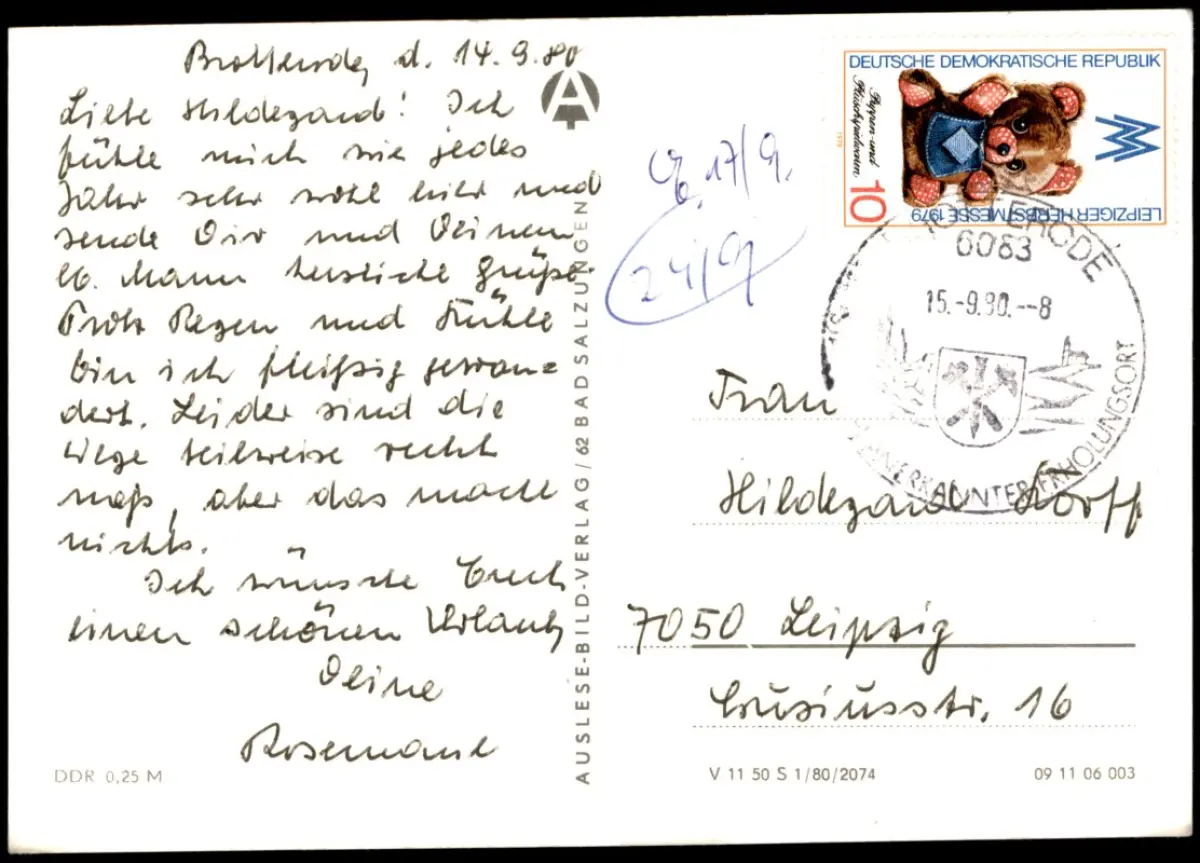 Brotterode, d. 14.9.80
Liebe Hildegard! Ich
fühle mich wie jedes
Jahr sehr wohl hier und
sende Dir und Deinem
lb. Mann herzliche Grüße.
Trotz Regen und Kühle
bin ich fleißig gewan=
dert. Leider sind die
Wege teilweise recht
naß, aber das macht
nichts.
Ich wünsche Euch
einen schönen Urlaub
Deine
Rosemarie
DDR 0,25 M
AUSLESE-BILD-VERLAG/62 BAD SALZUNGEN
17/9.
24/9
DEUTSCHE DEMOKRATISCHE REPUBLIK
Puppen- und
Plüschspielwaren
1979
10
MM
LEIPZIGER HERBSTMESSE 1979
6083
15.-9.80.--8
Frau
Hildegard Korff
7050 Leipzig
Crusiusstr. 16
V 11 50 S 1/80/2074
09 11 06 003